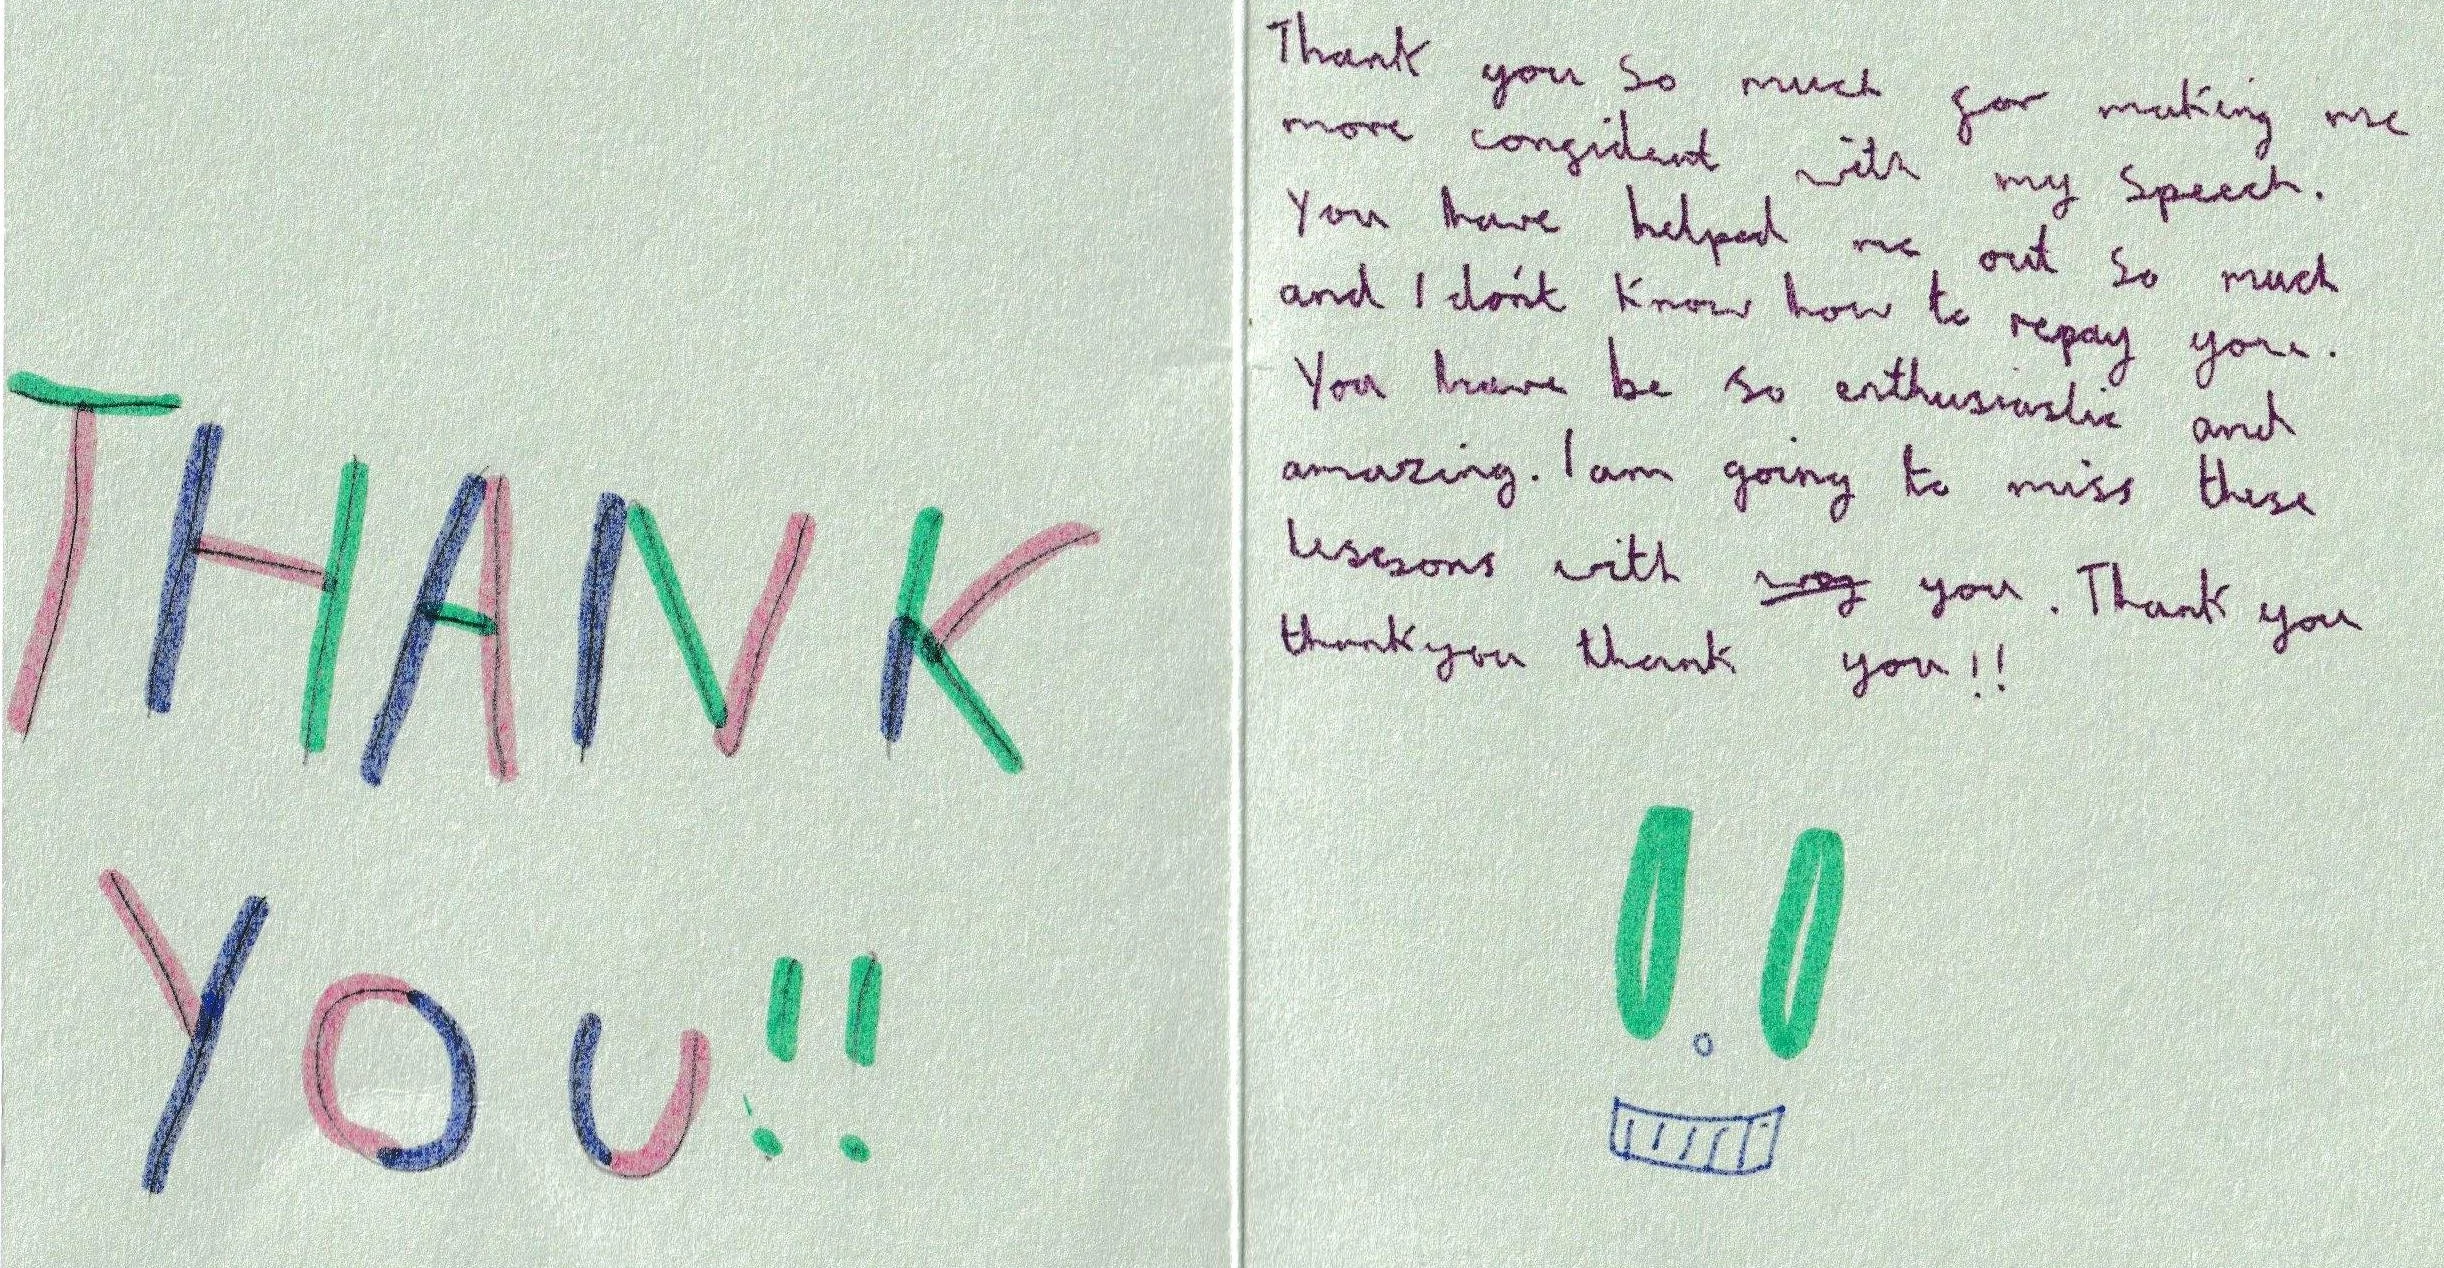 THANK
YOU!!
Thank you so much for making me
more confident with my speech.
You have helped me out so much
and I don't know how to repay you.
You have be so enthusiastic and
amazing. I am going to miss these
lessons with you. Thank you
thankyou thank you!!